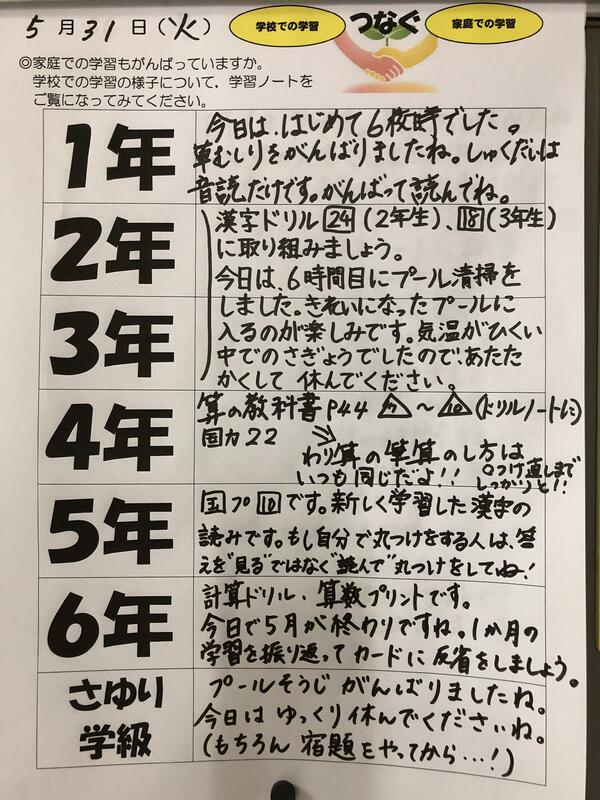 5月31日(火)
学校での学習
つなぐ
家庭での学習
◎家庭での学習もがんばっていますか。
学校での学習の様子について，学習ノートを
ご覧になってみてください。
1年
今日は、はじめて6校時でした。
草むしりをがんばりましたね。しゅくだいは
音読だけです。がんばって読んでね。
2年
3年
漢字ドリル24(2年生)、18(3年生)
に取り組みましょう。
今日は、6時間目にプール清掃を
しました。きれいになったプールに
入るのが楽しみです。気温がひくい
中でのさぎょうでしたので、あたた
かくして休んでください。
4年
算の教科書P44 △7～△10(ドリルノートに)
国力22
⇒わり算の筆算のし方は
いつも同じだよ!!
○つけ直しまで
しっかりと!!
5年
国プ10です。新しく学習した漢字の
読みです。もし自分で丸つけをする人は、答
えを"見る"ではなく"読んで"丸つけをしてね!
6年
計算ドリル、算数プリントです。
今日で5月が終わりですね。1か月の
学習を振り返ってカードに反省をしましょう。
さゆり
学級
プールそうじがんばりましたね。
今日はゆっくり休んでくださいね。
(もちろん宿題をやってから…!)